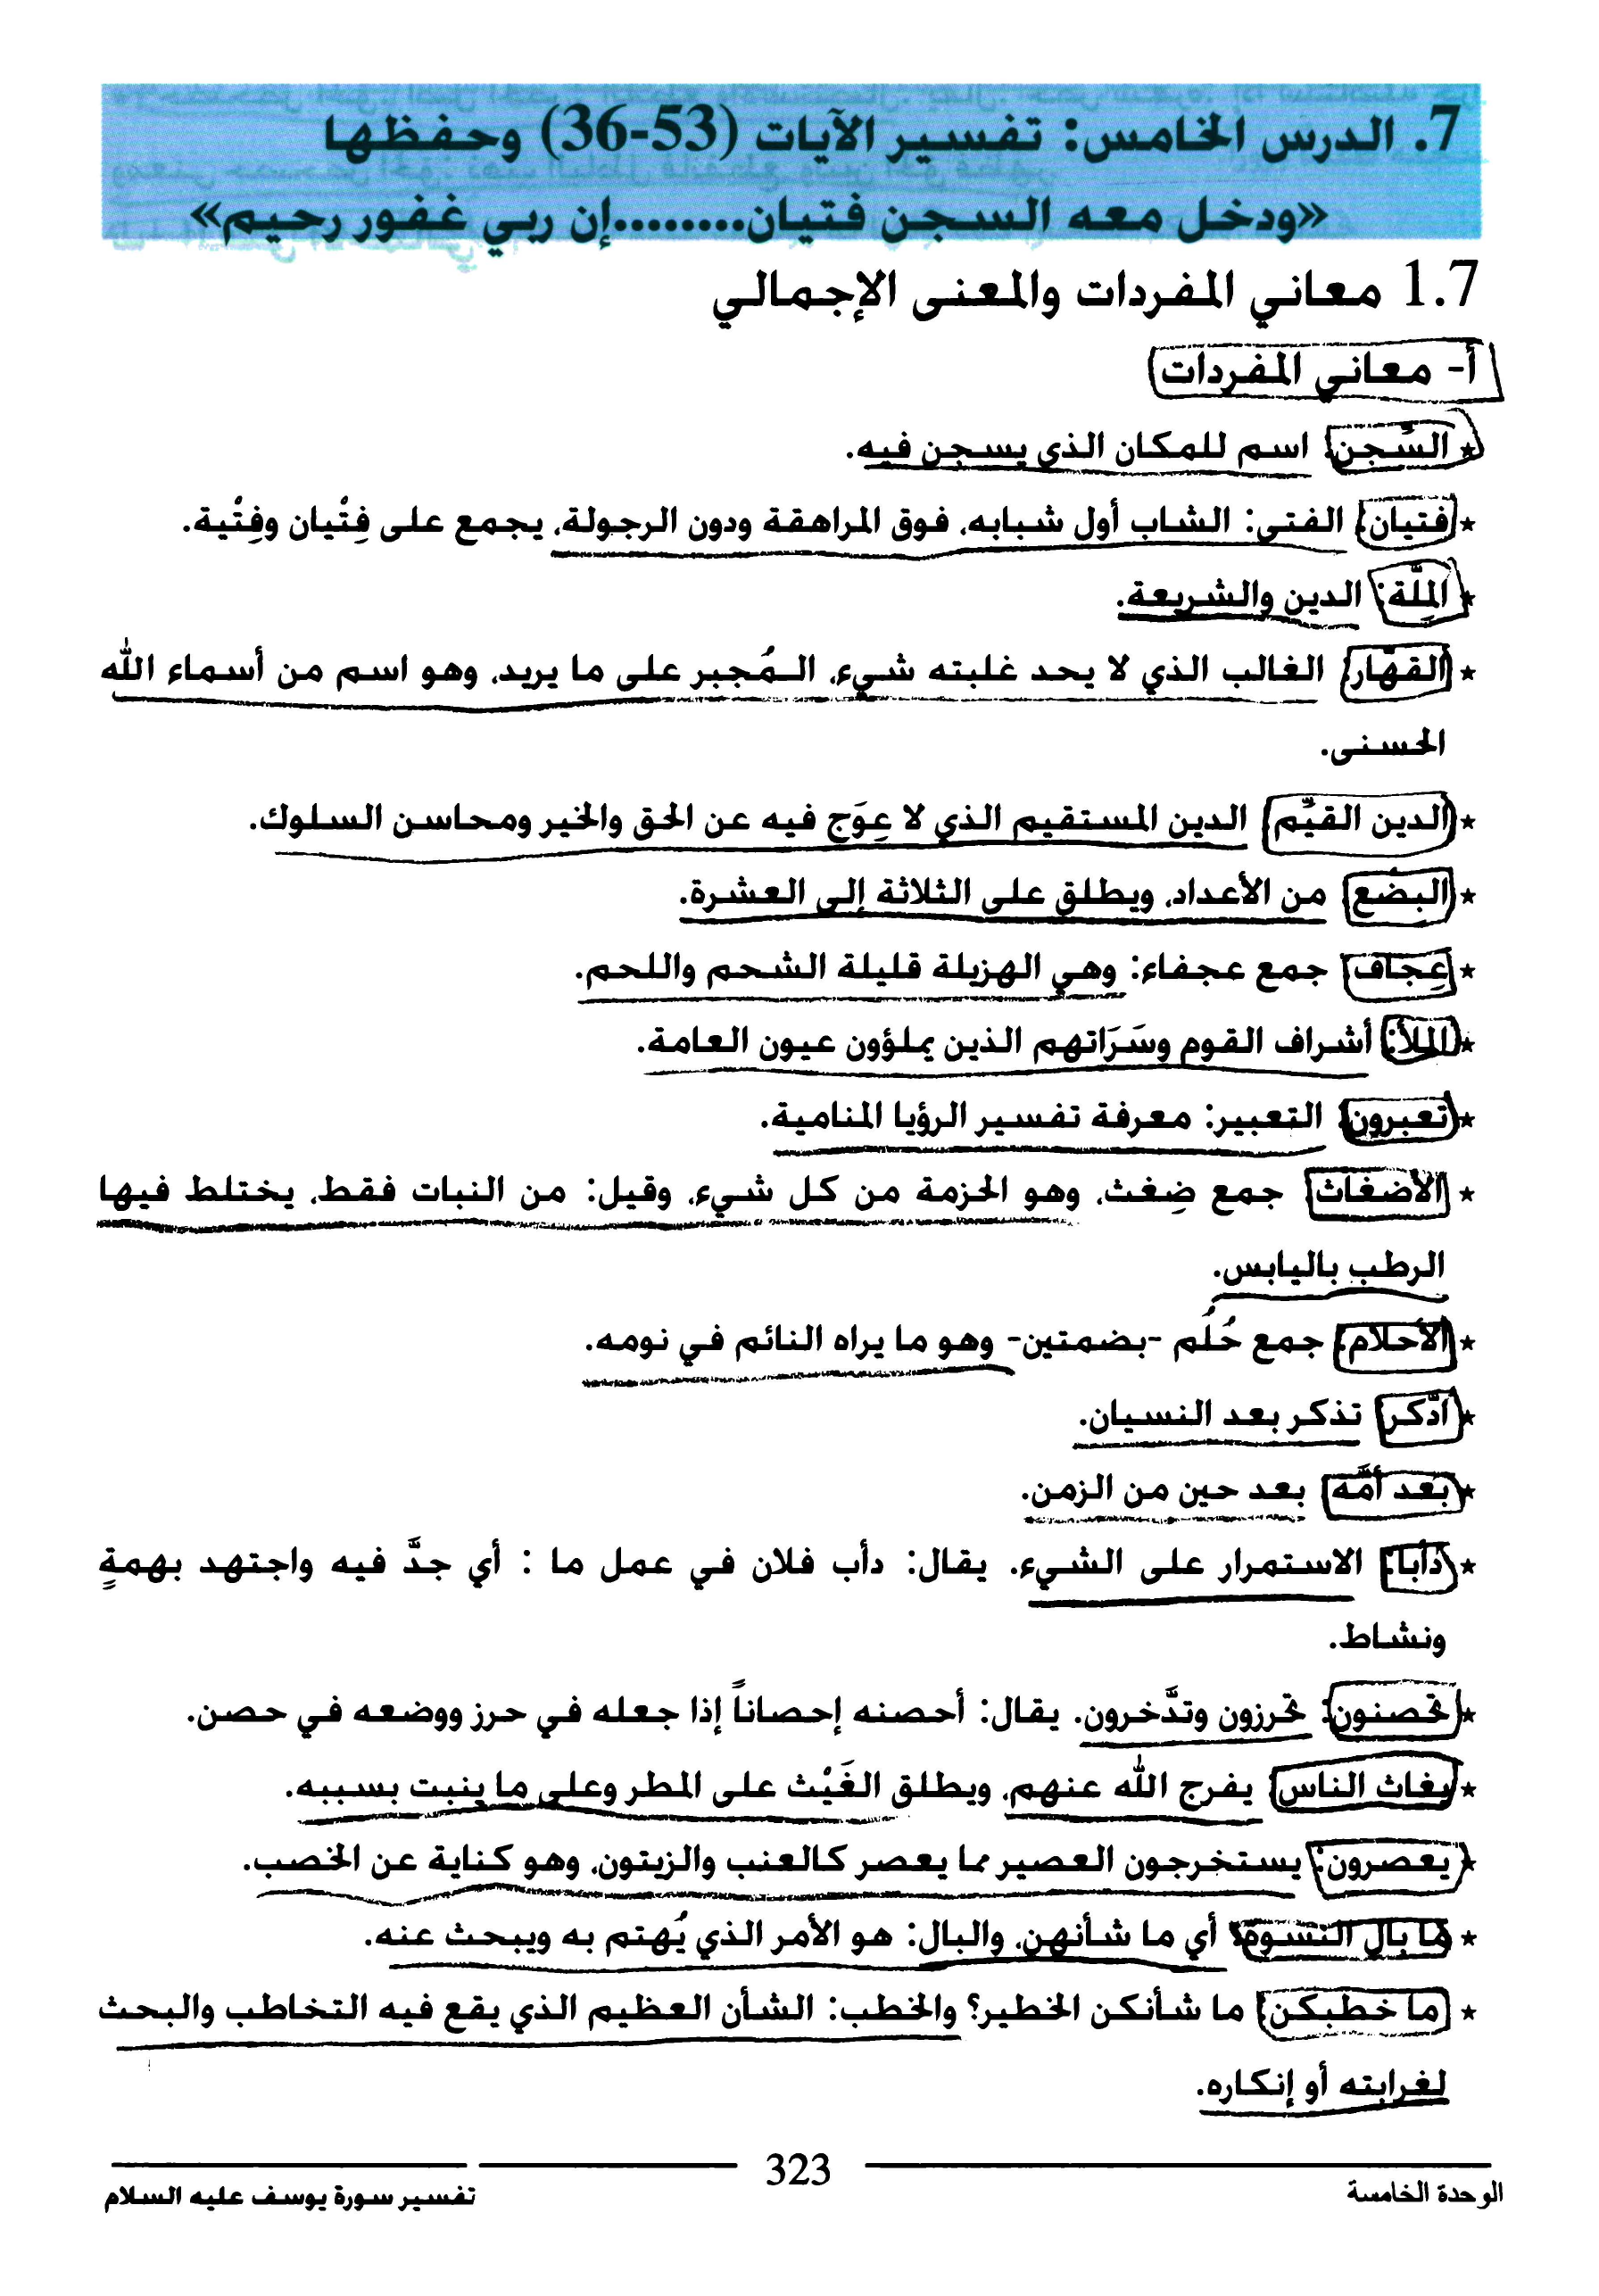 7. الدرس الخامس: تفسير الآيات (53-36) وحفظها
«ودخل معه السجن فتيان........إن ربي غفور رحيم»
1.7 معاني المفردات والمعنى الإجمالي
أ- معاني المفردات
* السِّجن: اسم للمكان الذي يسجن فيه.
* فتيان: الفتى: الشاب أول شبابه، فوق المراهقة ودون الرجولة، يجمع على فِتْيان وفِتْية.
* المِلَّة: الدين والشريعة.
* القهّار: الغالب الذي لا يحد غلبته شيء، المُجبر على ما يريد، وهو اسم من أسماء الله
الحسنى.
* الدين القيِّم: الدين المستقيم الذي لا عِوَج فيه عن الحق والخير ومحاسن السلوك.
* البضْع: من الأعداد، ويطلق على الثلاثة إلى العشرة.
* عِجاف: جمع عجفاء: وهي الهزيلة قليلة الشحم واللحم.
* الملأ: أشراف القوم وسَرَاتهم الذين يملؤون عيون العامة.
* تعبرون: التعبير: معرفة تفسير الرؤيا المنامية.
* الأضغاث: جمع ضِغث، وهو الحزمة من كل شيء، وقيل: من النبات فقط، يختلط فيها
الرطب باليابس.
* الأحلام: جمع حُلُم -بضمتين- وهو ما يراه النائم في نومه.
* ادَّكر: تذكر بعد النسيان.
* بعد أمَّة: بعد حين من الزمن.
* دأبا: الاستمرار على الشيء. يقال: دأب فلان في عمل ما : أي جدَّ فيه واجتهد بهمةٍ
ونشاط.
* تحصنون: تحرزون وتدَّخرون. يقال: أحصنه إحصاناً إذا جعله في حرز ووضعه في حصن.
* يغاث الناس: يفرج الله عنهم، ويطلق الغَيْث على المطر وعلى ما ينبت بسببه.
* يعصرون: يستخرجون العصير مما يعصر كالعنب والزيتون، وهو كناية عن الخصب.
* ما بال النسوة؟ أي ما شأنهن، والبال: هو الأمر الذي يُهتم به ويبحث عنه.
* ما خطبكن: ما شأنكن الخطير؟ والخطب: الشأن العظيم الذي يقع فيه التخاطب والبحث
لغرابته أو إنكاره.
الوحدة الخامسة 323 تفسير سورة يوسف عليه السلام